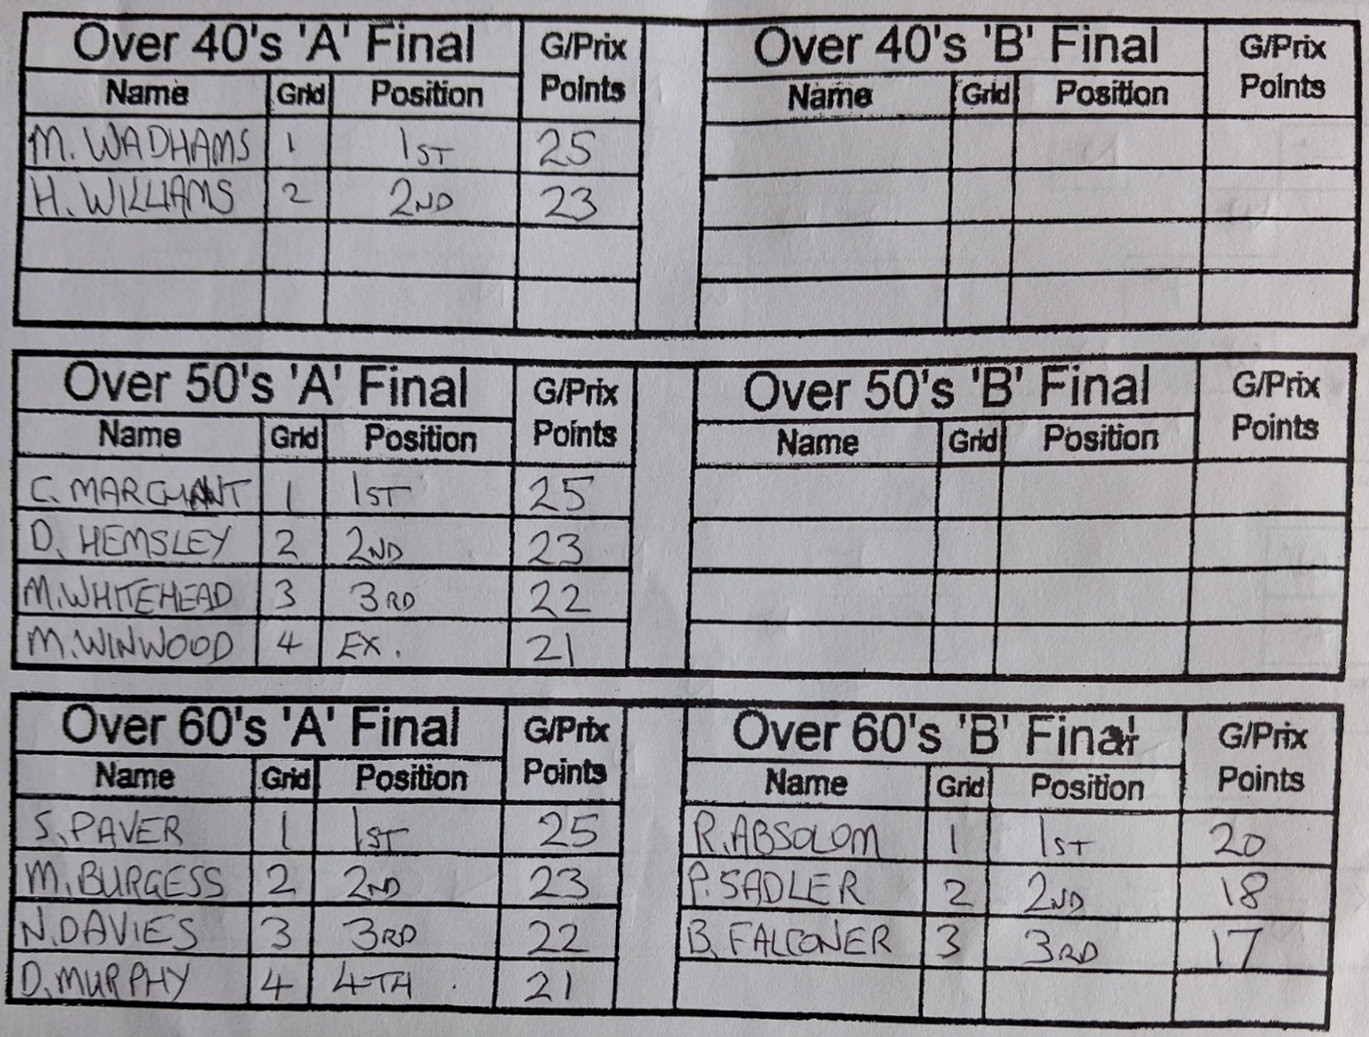 Over 40's 'A' Final G/Prix Points
Name Grid Position
M. WADHAMS 1 1ST 25
H. WILLIAMS 2 2ND 23
Over 40's 'B' Final G/Prix Points
Name Grid Position
Over 50's 'A' Final G/Prix Points
Name Grid Position
C. MARCHANT 1 1ST 25
D. HEMSLEY 2 2ND 23
M.WHITEHEAD 3 3RD 22
M.WINWOOD 4 EX. 21
Over 50's 'B' Final G/Prix Points
Name Grid Position
Over 60's 'A' Final G/Prix Points
Name Grid Position
S.PAVER 1 1ST 25
M.BURGESS 2 2ND 23
N.DAVIES 3 3RD 22
D.MURPHY 4 4TH 21
Over 60's 'B' Final G/Prix Points
Name Grid Position
R.ABSOLOM 1 1ST 20
P.SADLER 2 2ND 18
B.FALCONER 3 3RD 17